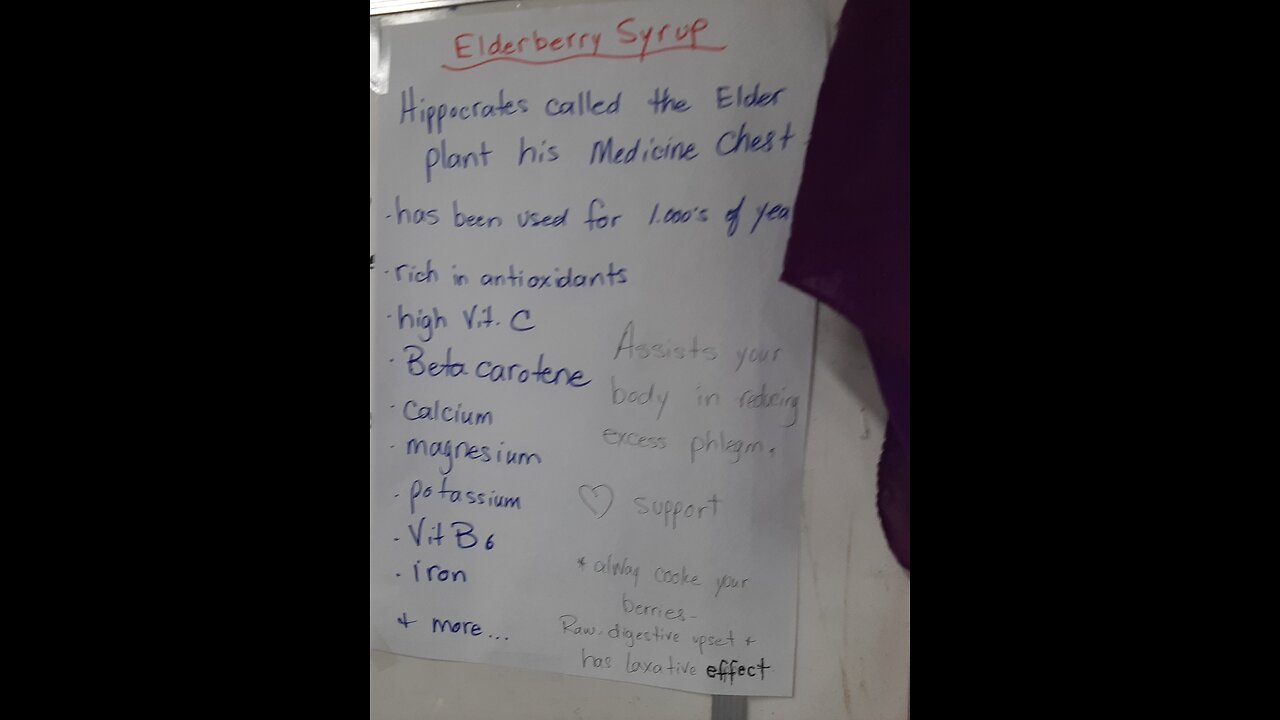 Elderberry Syrup
Hippocrates called the Elder
plant his Medicine Chest
·has been used for 1.000's of yea
·rich in antioxidants
·high Vit. C
·Beta carotene
·Calcium
·magnesium
·potassium
·Vit B6
·iron
+ more...
Assists your
body in reducing
excess phlegm.
♡ support
* alway cooke your
berries-
Raw-digestive upset +
has laxative effect